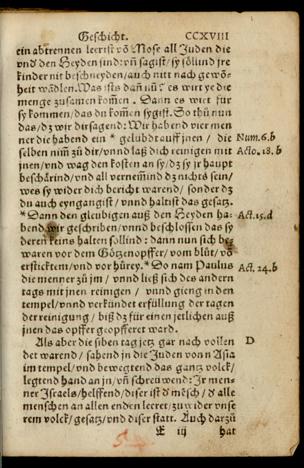 Geschicht. CCXVIII
ein abtrennen leerist vō Mose all Juden die
vnd den Heyden sind: vn̄ sagist/ sy söllind jre
kinder nit beschneyden/ auch nitt nach gewon-
heit wādlen. Was ists dañ nū? es wirt ye die
menge zusamen kom̄en. Dann es wirt für
sy kommen/ das du kom̄en sygist. So thū nun
das/ dz wir dir sagend: Wir habend vier men
ner die habend ein * gelübdt auff jnen/ die Num.6.b
selben nim̄ zū dir/ vnnd laß dich reinigen mit Acto.18.b
jnen/ vnd wag den kosten an sy/ dz sy jr haupt
beschärind/ vnd all vernem̄ind dz nichts sein/
wes sy wider dich bericht warend/ sonder dz
du auch eyngangist/ vnnd haltist das gesatz.
* Dann den gleubigen auß den Heyden ha- Act.15.d
bend wir geschriben/ vnnd beschlossen das sy
deren keins halten sollind: dann nun sich be-
waren vor dem Götzenopffer/ vom blūt/ vō
ersticktem/ vnd vor hūrey. * Do nam Paulus Act.24.b
die menner zū jm/ vnnd ließ sich des andern
tags mit jnen reinigen/ vnnd gieng in den
tempel/ vnnd verkündet erfüllung der tagen
der reinigung/ biß dz für einen jetlichen auß
jnen das opffer geopfferet ward.
Als aber die siben tag jetz gar nach vollen D
det warend/ sahend jn die Juden von Asia
im tempel/ vnd bewegtend das gantz volck/
legtend hand an jn/ vn̄ schreuwend: Ir men-
ner Israels/ helffend/ diser ist d mēsch/ d alle
menschen an allen enden leeret/ zuwider vnse
rem volck/ gesatz/ vnd diser statt. Auch darzū
E iij hat